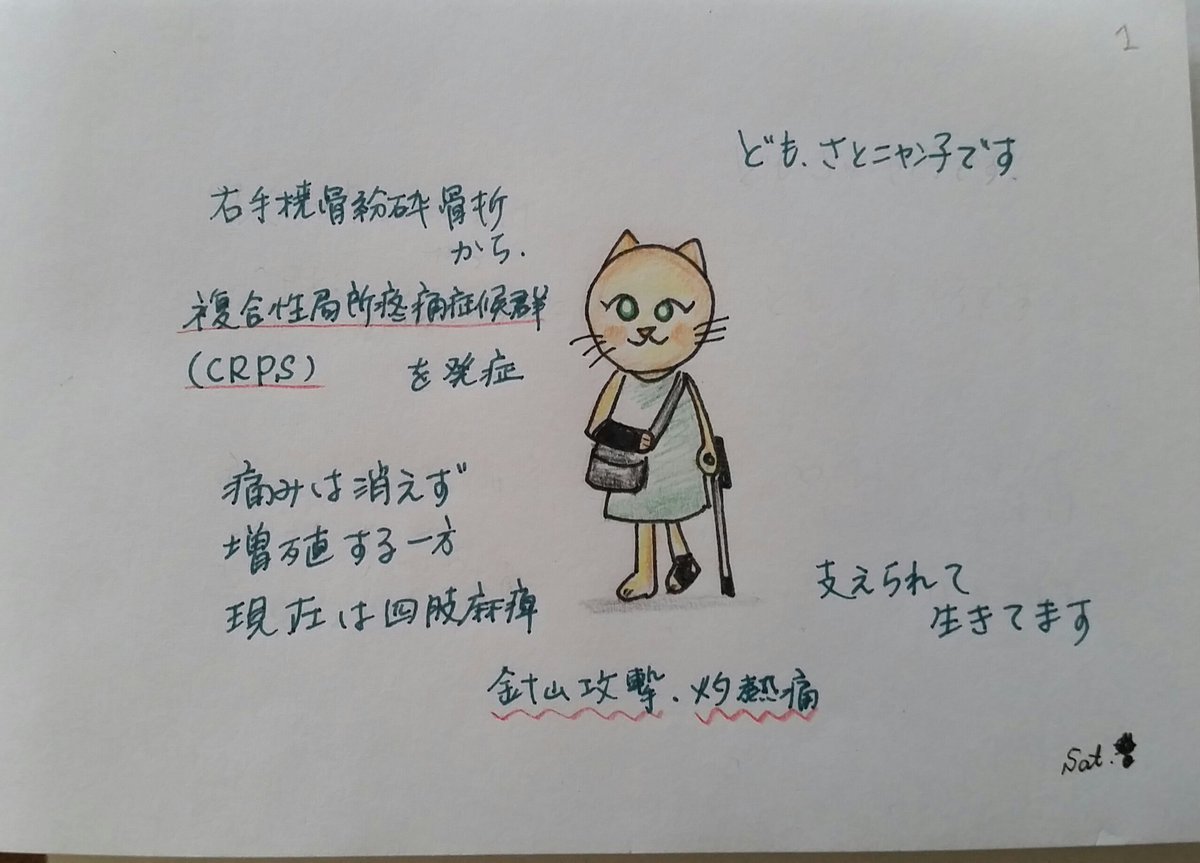 1
ども、さとニャン子です
右手橈骨粉砕骨折
から、
複合性局所疼痛症候群
(CRPS) を発症
痛みは消えず
増殖する一方
現在は四肢麻痺
支えられて
生きてます
針山攻撃、灼熱痛
Sat.